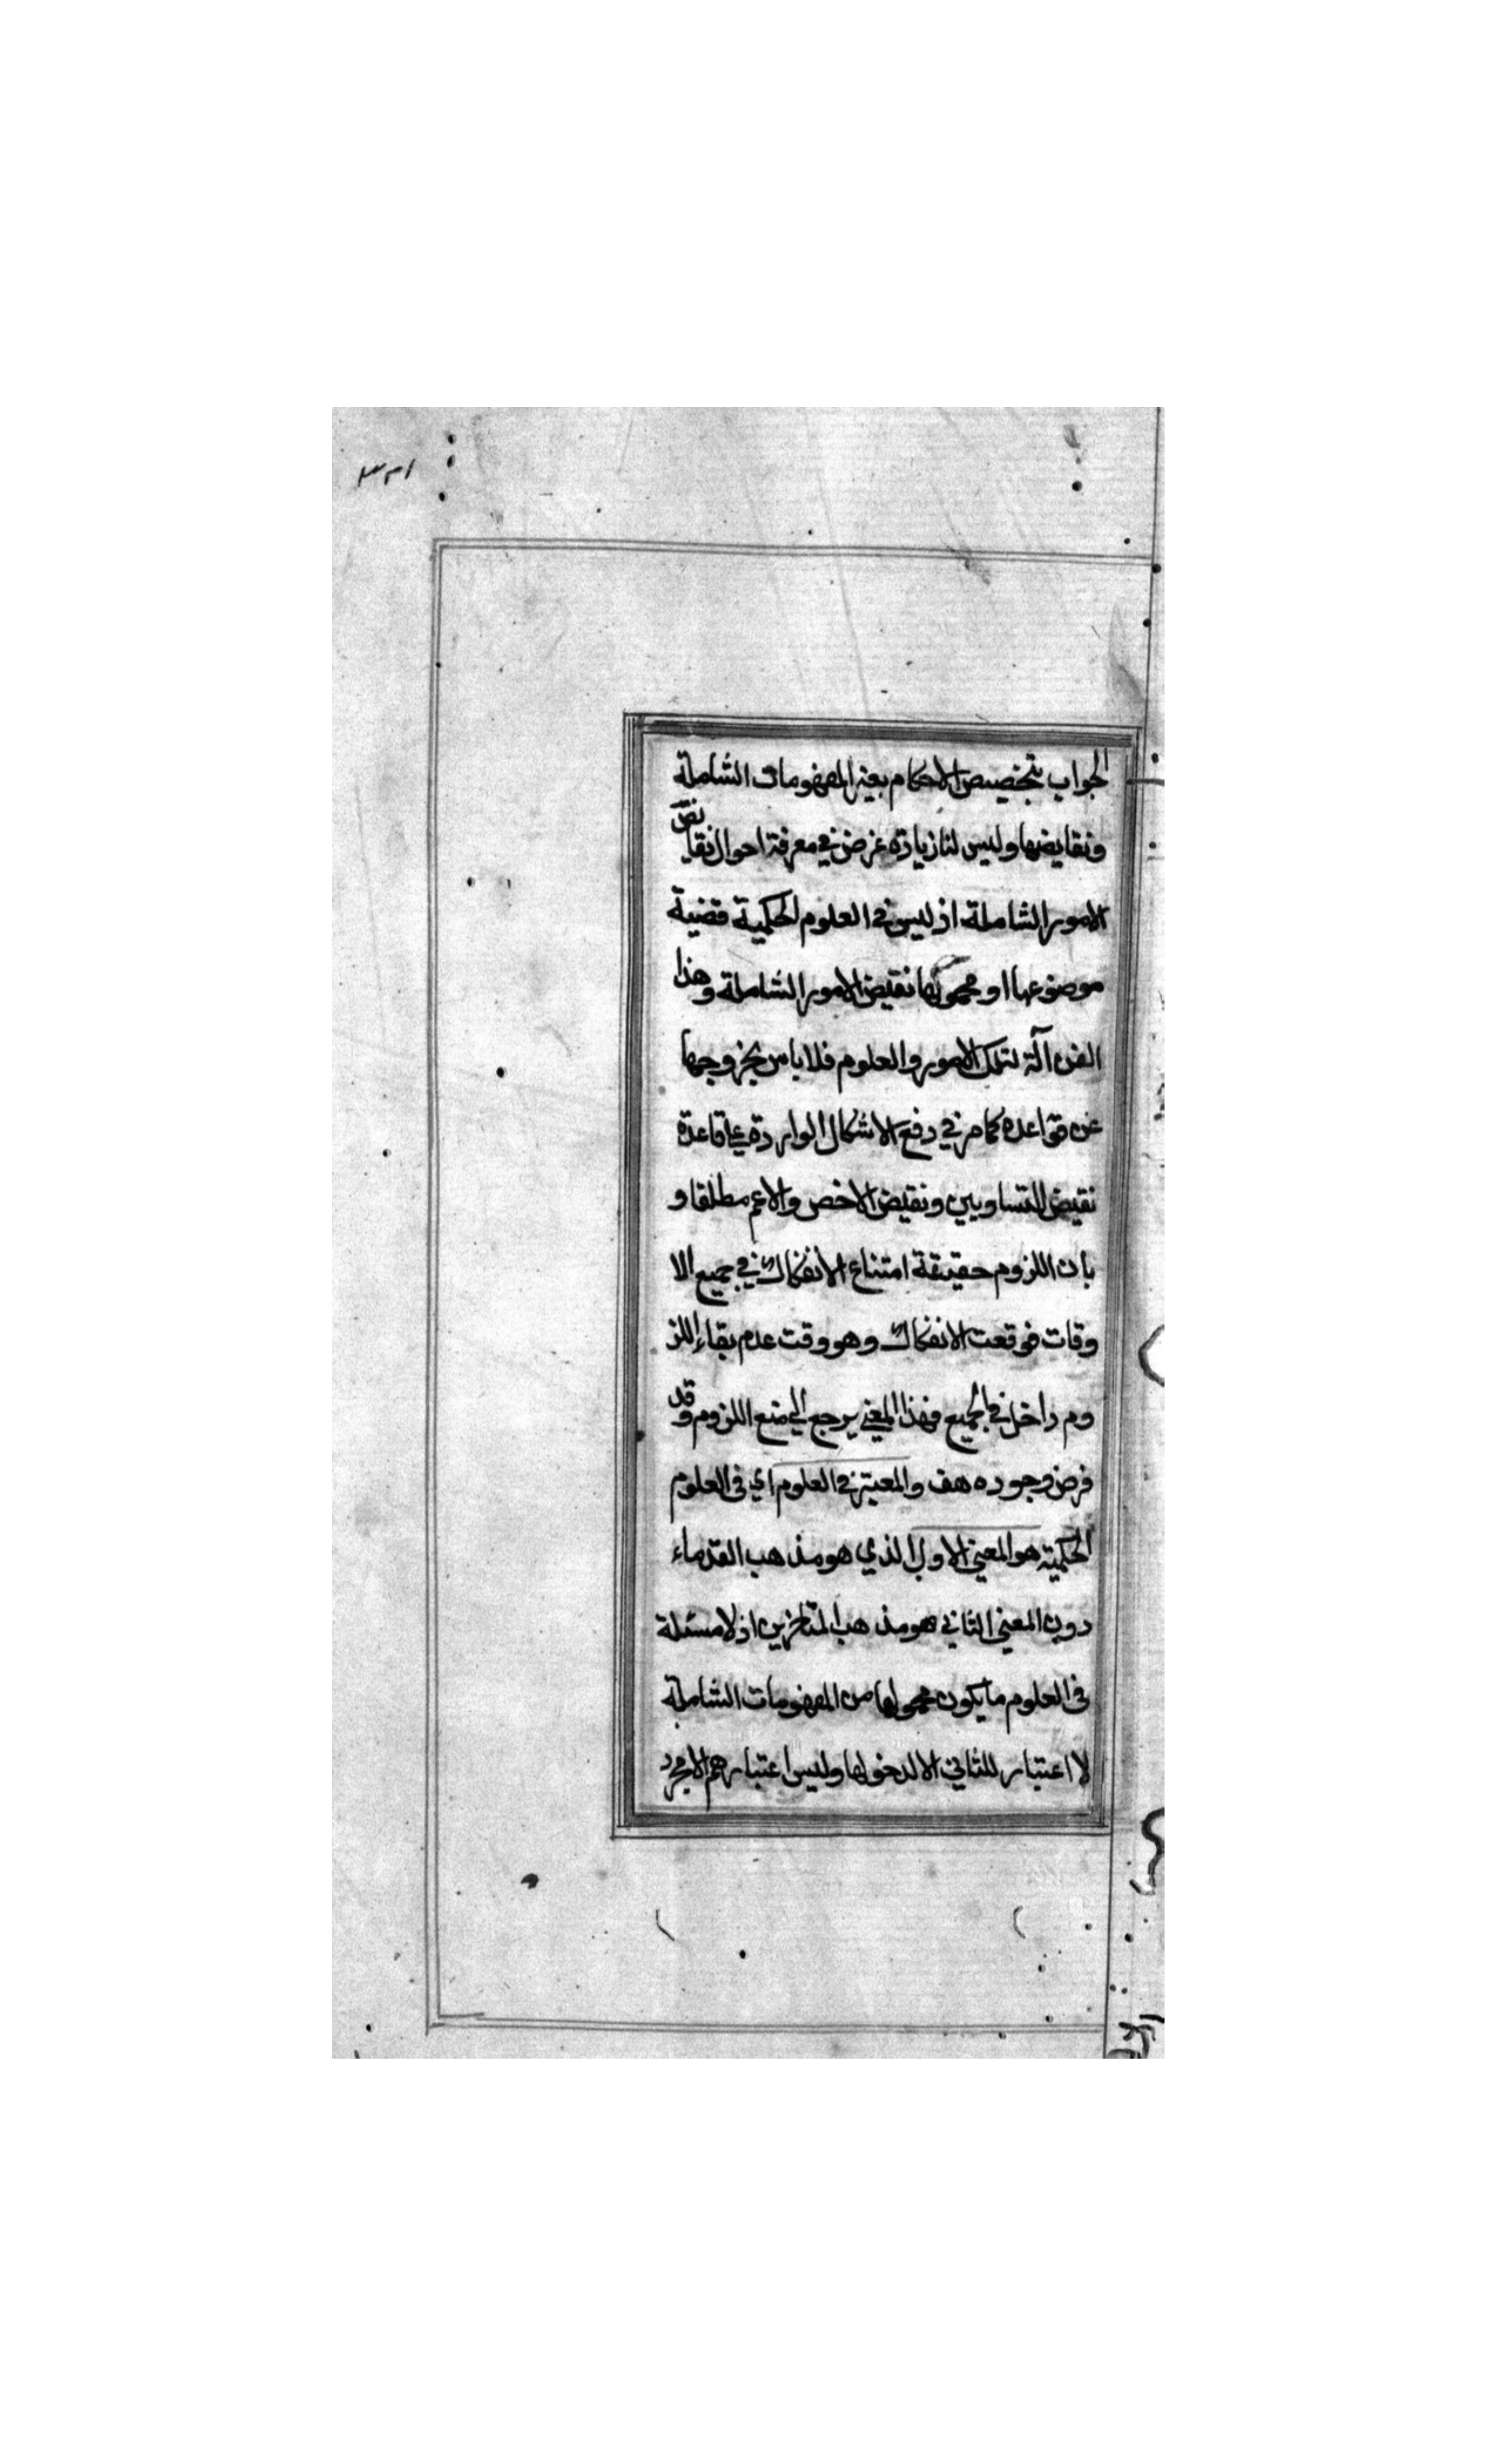 ٣٢١
الجواب بتخصيص الاحكام بغير المفهومات الشاملة
ونقايضها وليس لنا زيادة غرض في معرفة احوال نقايض
الامور الشاملة اذ ليس في العلوم الحكمية قضية
موضوعها او محمولها نقيض الامور الشاملة وهذا
الفن آلة لتلك الامور والعلوم فلا باس بخروجها
عن قواعده كما مر في دفع الاشكال الواردة على قاعدة
نقيض المتساويين ونقيض الاخص والاعم مطلقا و
بان اللزوم حقيقة امتناع الانفكاك في جميع الا
وقات فوقعت الانفكاك وهو وقت عدم بقاء اللز
وم داخل في الجميع فهذا المعنى يرجع الى منع اللزوم وقد
فرض وجوده هف والمعتبر في العلوم اي في العلوم
الحكمية هو المعنى الاول الذي هو مذهب القدماء
دون المعنى الثاني هو مذهب المتاخرين اذ لا مسئلة
في العلوم ما يكون محمولها من المفهومات الشاملة
لا اعتبار للثاني الا لدخولها وليس اعتبارهم الا مجرد